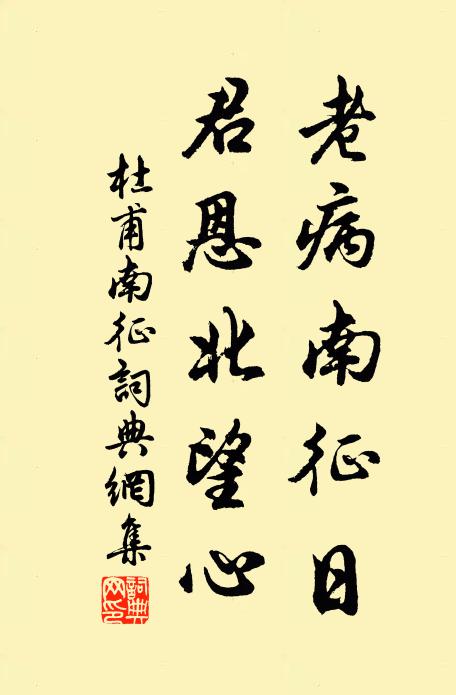 老病南征日
君恩北望心
杜甫南征詞典網集
詞典網印